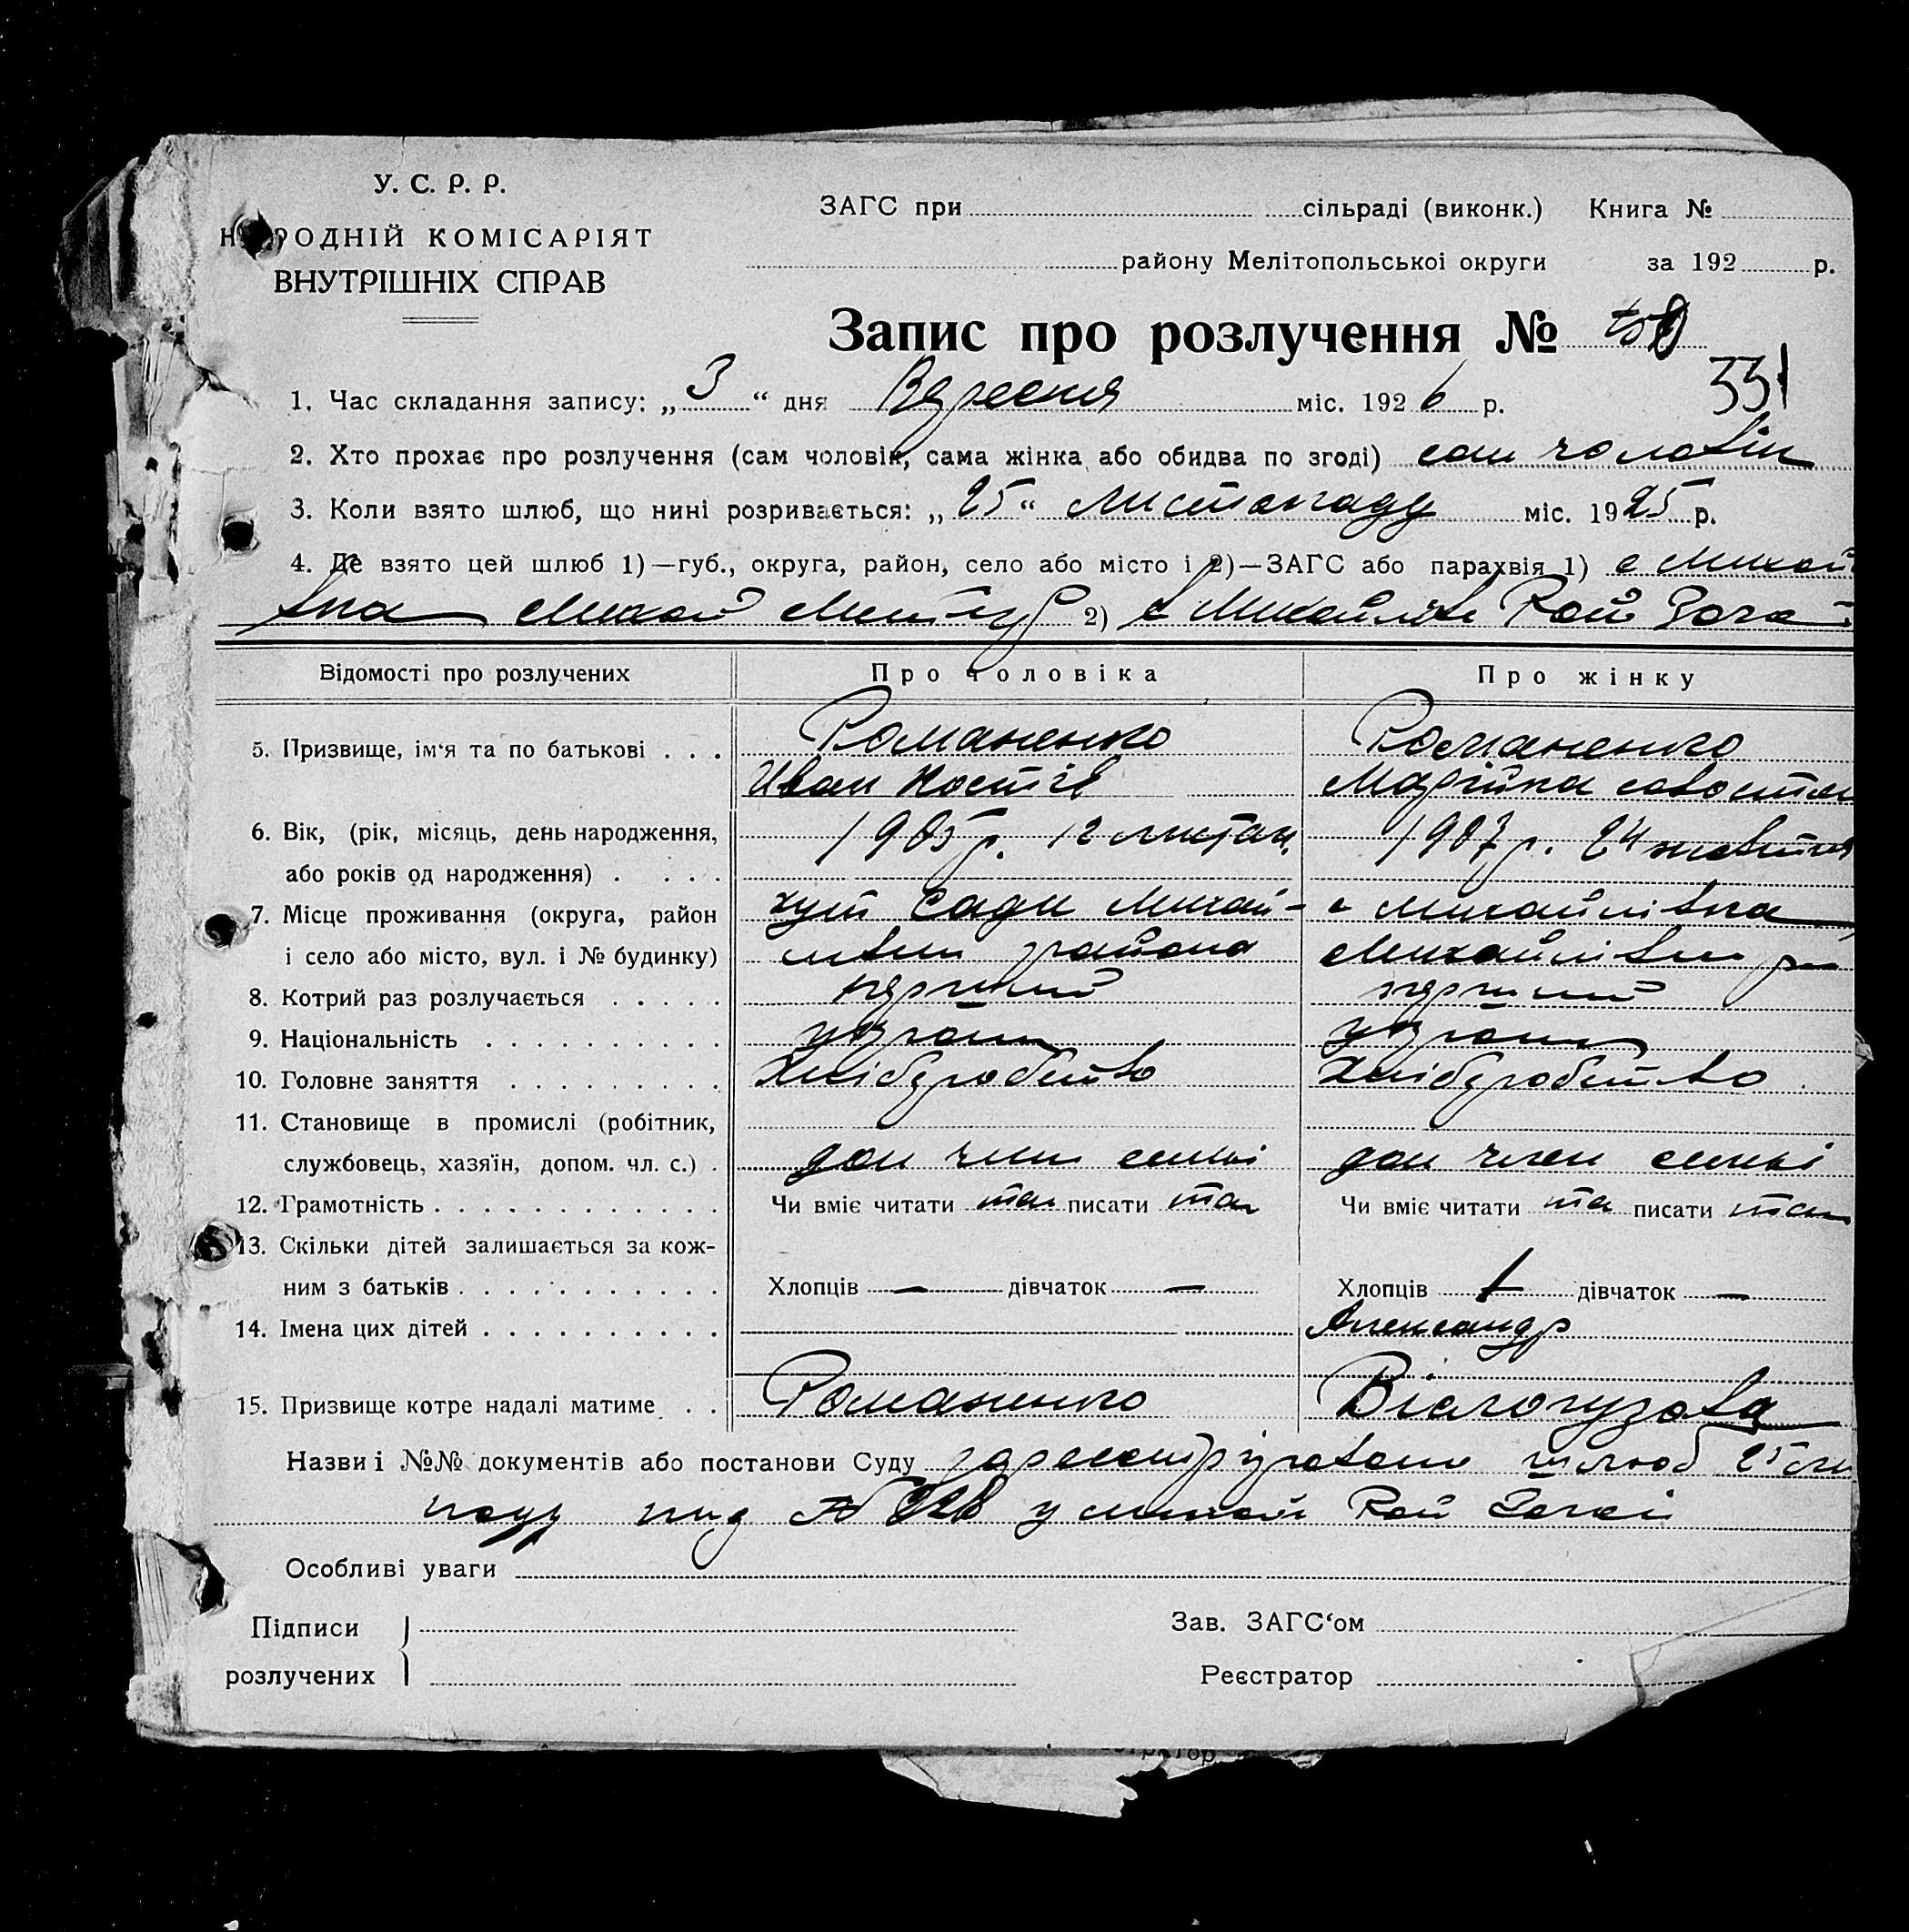 У. С. Р. Р.
НАРОДНІЙ КОМІСАРІЯТ
ВНУТРІШНІХ СПРАВ
ЗАГС при сільраді (виконк.) Книга №
району Мелітопольськоі округи за 192 р.
Запис про розлучення №
331
1. Час складання запису: „3“ дня Вересня міс. 1926 р.
2. Хто прохає про розлучення (сам чоловік, сама жінка або обидва по згоді) сам чоловік
3. Коли взято шлюб, що нині розривається: „25“ Листопаду міс. 1925 р.
4. Де взято цей шлюб 1)—губ., округа, район, село або місто і 2)—ЗАГС або парахвія 1) с Михай
вка Михай 2) Рай
Відомості про розлучених Про чоловіка Про жінку
5. Призвище, ім‘я та по батькові . . . Романенко Романенко
Иван Костів Марійка
6. Вік, (рік, місяць, день народження, 1905 р. 12 листоп. 1907 р. 24 жовтня
або років од народження) . . . .
7. Місце проживання (округа, район хут Сади Михай- с Михайлівка
і село або місто, вул. і № будинку) района
8. Котрий раз розлучається . . . . . перший перший
9. Національність . . . . . . . . . . україн україн
10. Головне заняття . . . . . . . . . Хліборобство Хліборобство
11. Становище в промислі (робітник,
службовець, хазяїн, допом. чл. с.) . доп член семьі доп член семьі
12. Грамотність . . . . . . . . . . . . Чи вміє читати так писати так Чи вміє читати так писати так
13. Скільки дітей залишається за кож-
ним з батьків . . . . . . . . . . . Хлопців — дівчаток — Хлопців 1 дівчаток —
14. Імена цих дітей . . . . . . . . . . Александр
15. Призвище котре надалі матиме . . Романенко Білогузова
Назви і №№ документів або постанови Суду шлюб 25
під № у Михай Рай
Особливі уваги
Підписи Зав. ЗАГС‘ом
розлучених Реєстратор